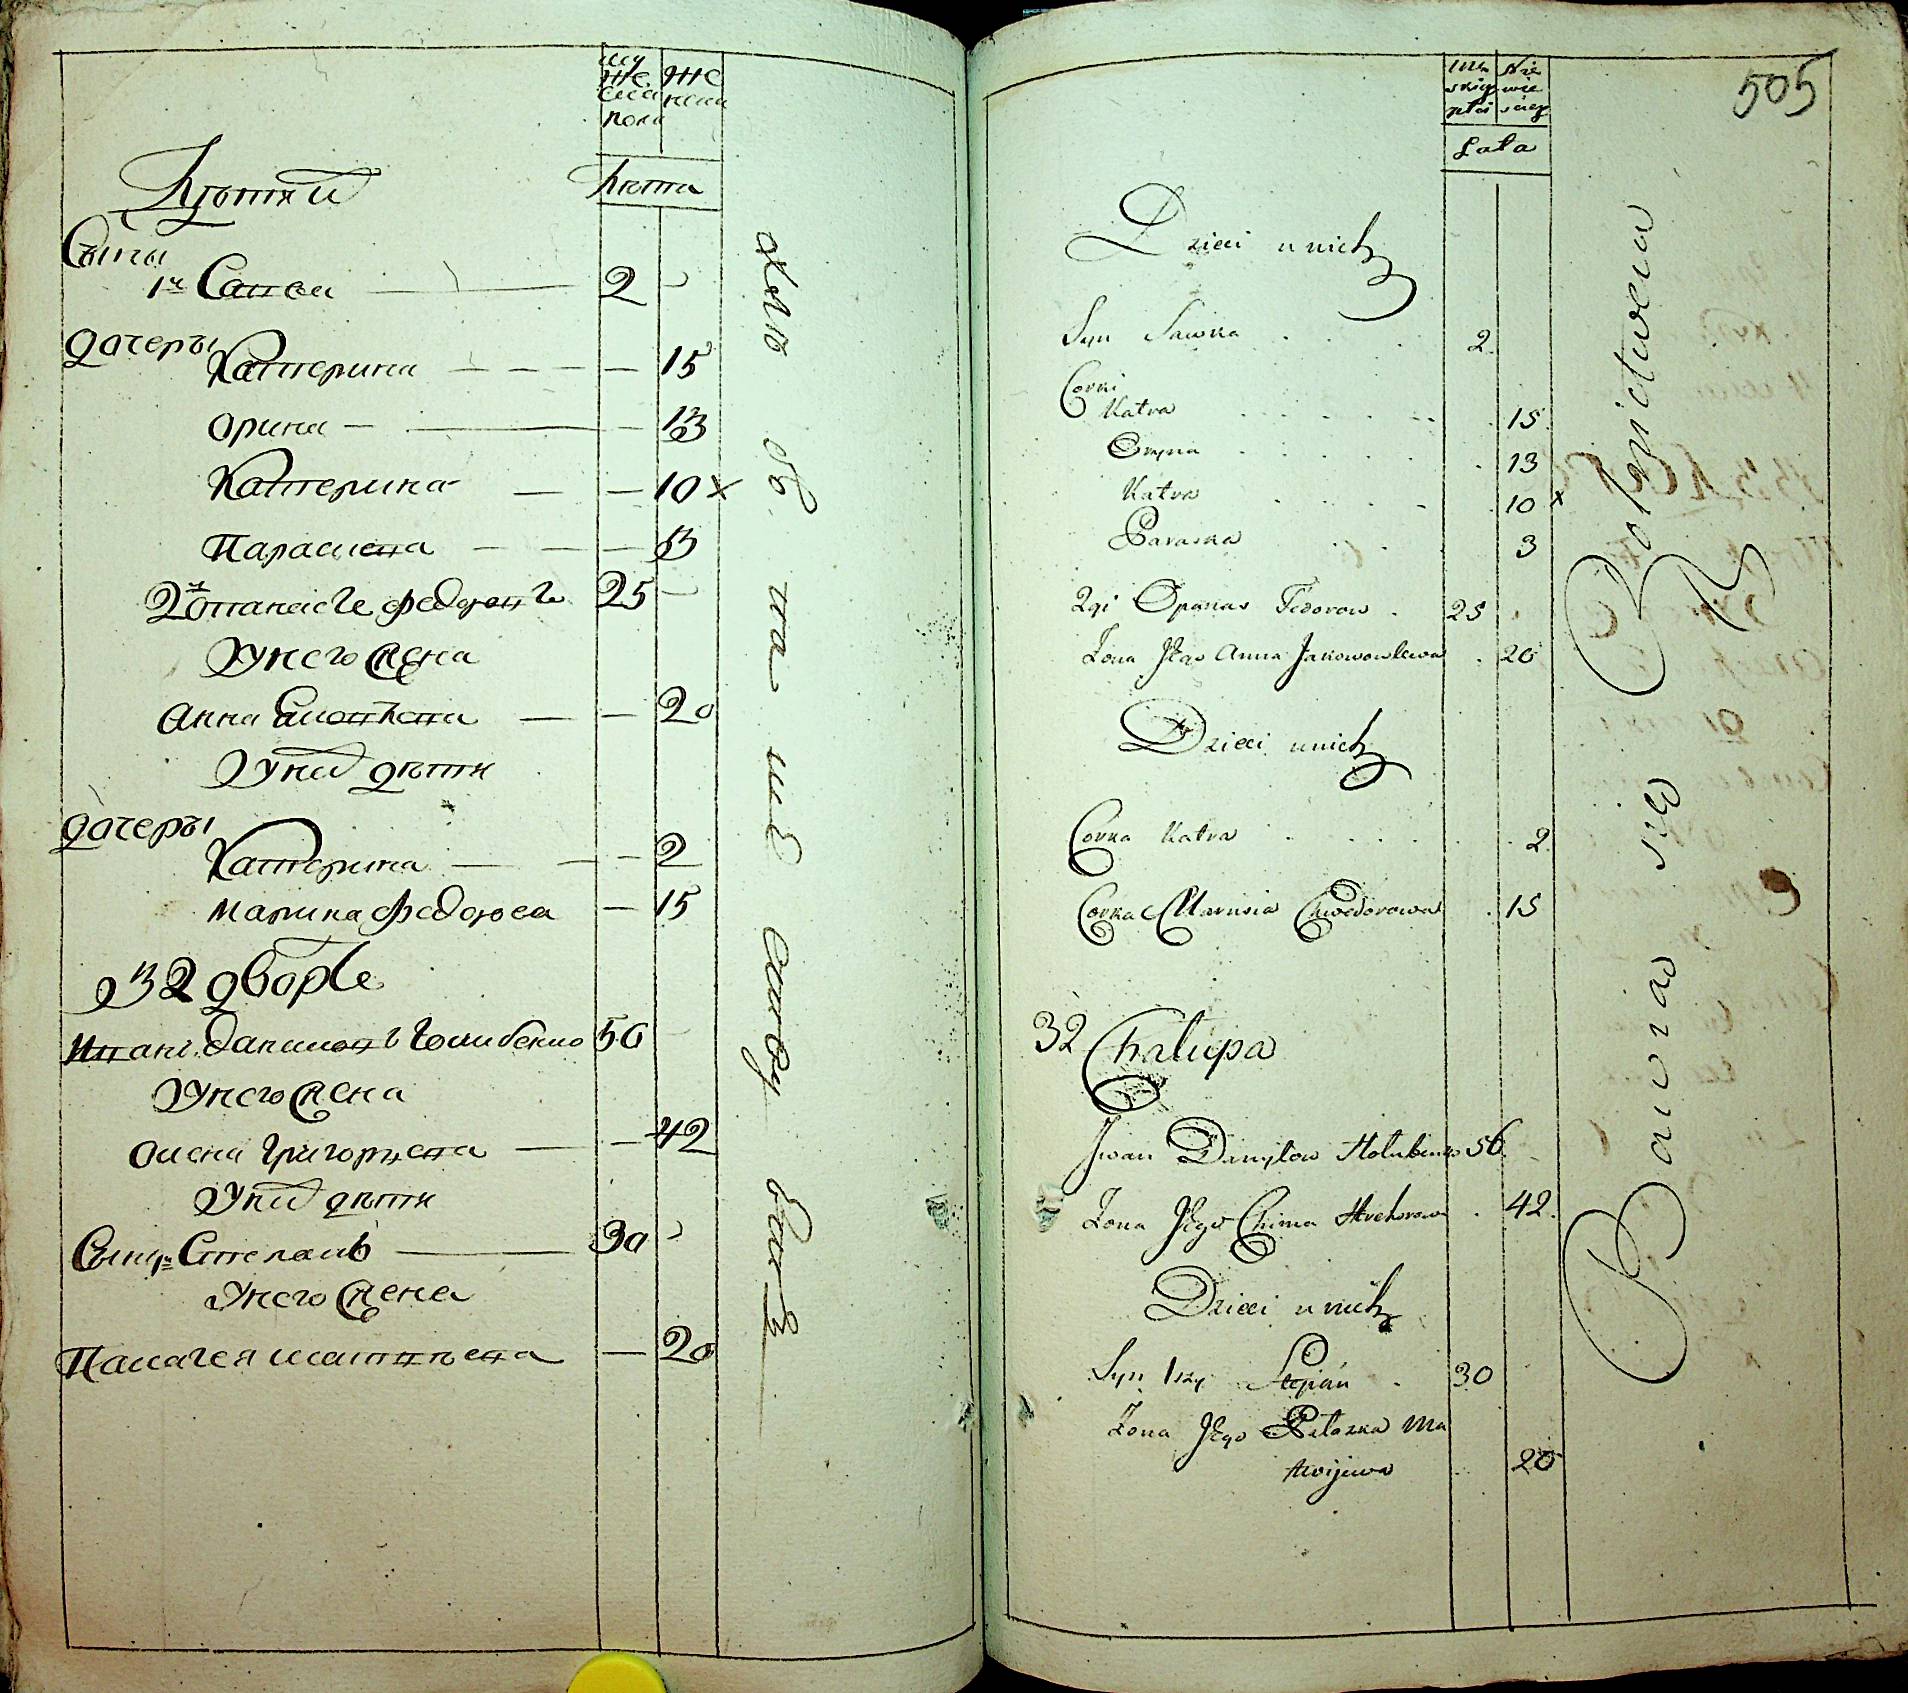 муже
ска
пола
Же
нска
Лѣта
Дѣтей
Сыны
1й Савва 2
дочеры
Катерина 15
Орина 13
Катерина 10 x
Параскева 3
2й Опанасъ Федоровъ 25
У него жена
Анна 20
У них дѣти
дочеры
Катерина 2
Марина Федорова 15
В 32 дворѣ
Иванъ Даниловъ Голубенко 56
У него жена
Олена Григорьева 42
У них дѣти
Сынъ 1й Степанъ 30
У него жена
Палагея Матвѣева 20
505
Męz
skiey
płci
Nie
wie
sciey
Lata
Dzieci u nich
Syn Sawka 2
Corki
Katra 15
Oryna 13
Katra 10 x
Paraska 3
2gi Opanas Fedorow 25
Zona Jego Anna 20
Dzieci u nich
Corka Katra 2
Corka Marusia Chwedorowa 15
32 Chałupa
Jwan Danyłow Hołubenko 56
Zona Jego Chima Hrehorowa 42
Dzieci u nich
Syn 1szy Stepan 30
Zona Jego Pełazka Ma
twijewa 20
Bawiąs się Rolnictwem